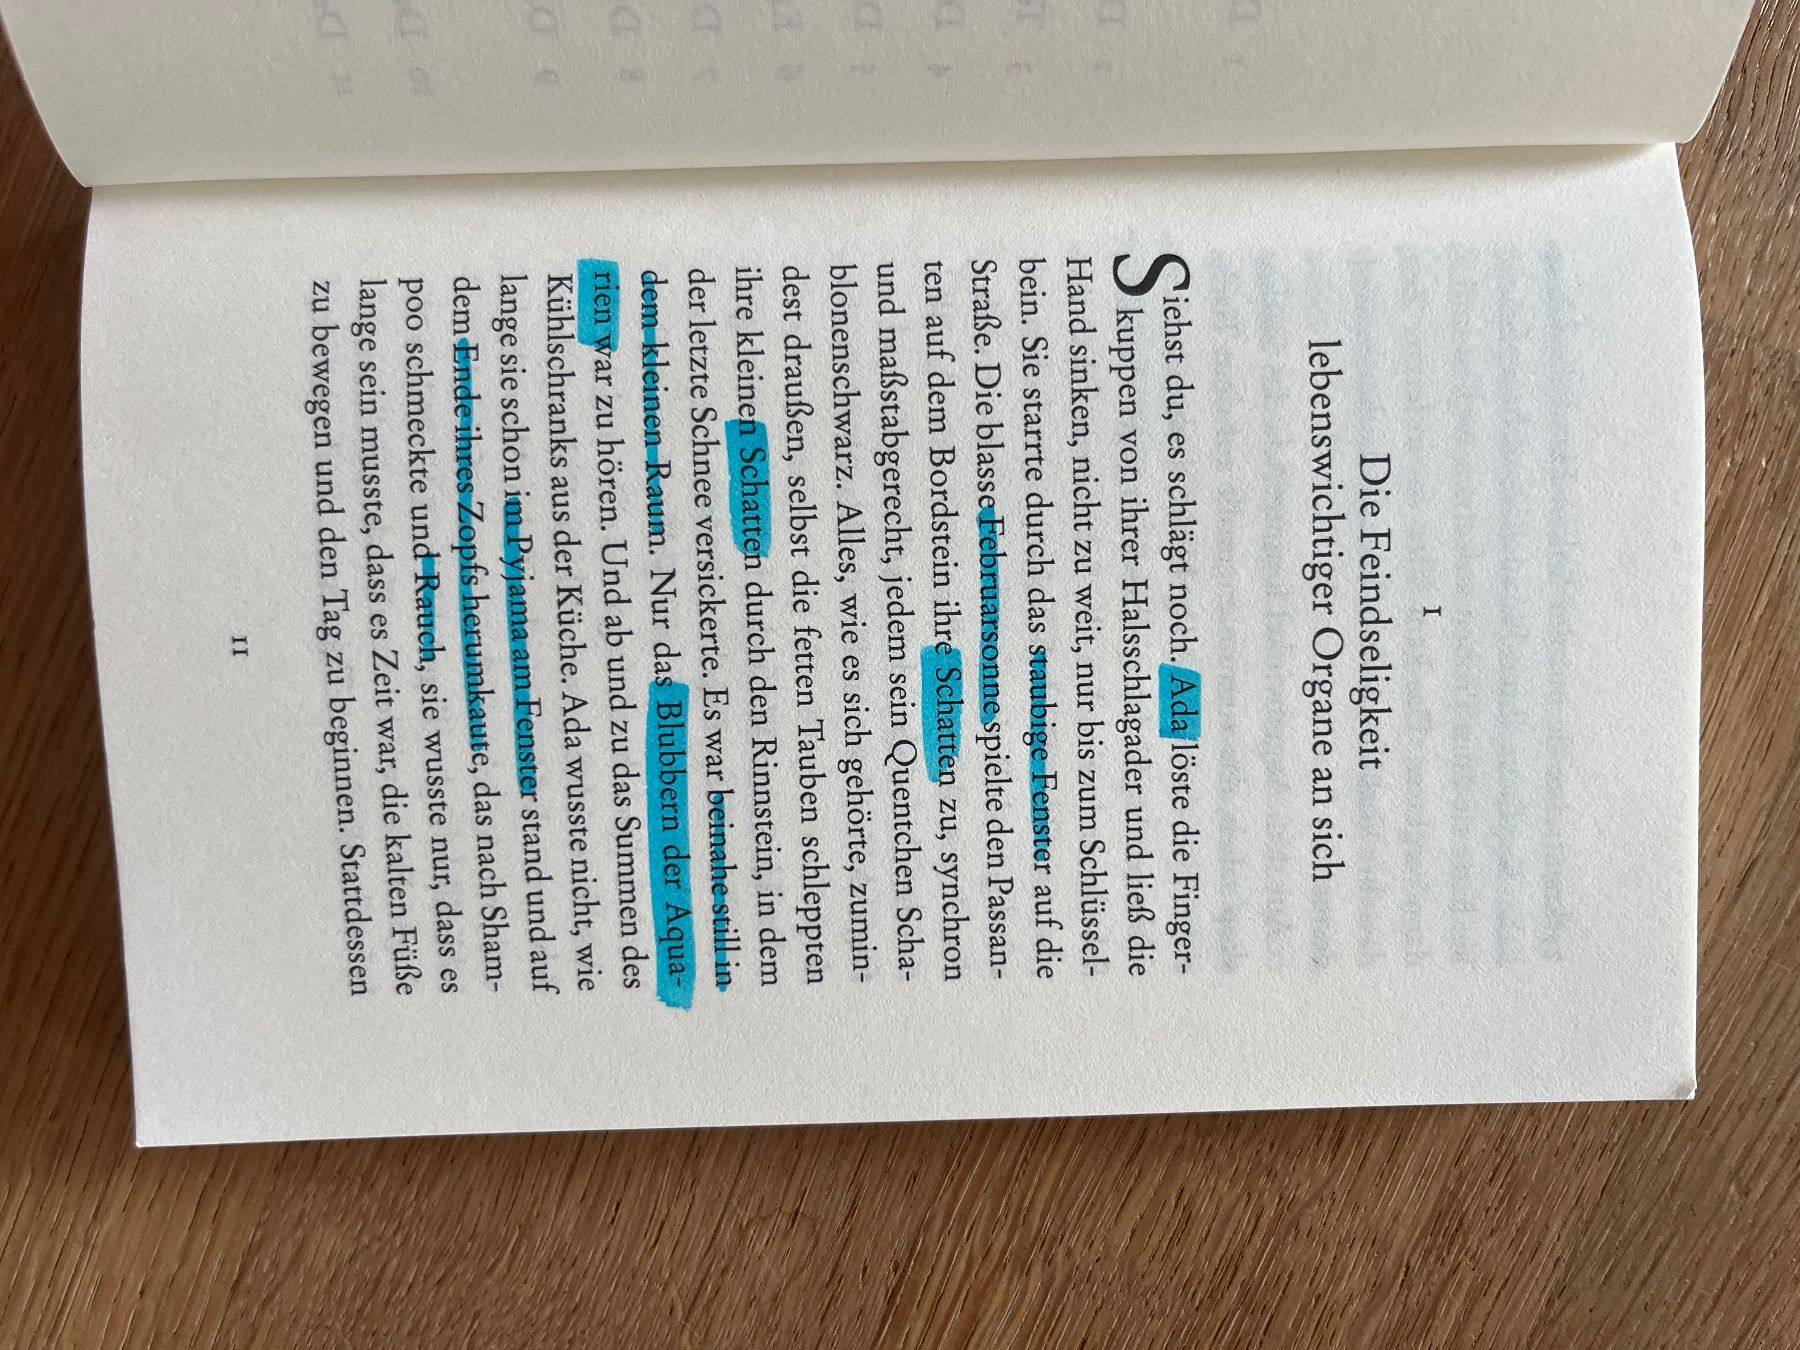 I
Die Feindseligkeit
lebenswichtiger Organe an sich
Siehst du, es schlägt noch. Ada löste die Finger-
kuppen von ihrer Halsschlagader und ließ die
Hand sinken, nicht zu weit, nur bis zum Schlüssel-
bein. Sie starrte durch das staubige Fenster auf die
Straße. Die blasse Februarsonne spielte den Passan-
ten auf dem Bordstein ihre Schatten zu, synchron
und maßstabgerecht, jedem sein Quentchen Scha-
blonenschwarz. Alles, wie es sich gehörte, zumin-
dest draußen, selbst die fetten Tauben schleppten
ihre kleinen Schatten durch den Rinnstein, in dem
der letzte Schnee versickerte. Es war beinahe still in
dem kleinen Raum. Nur das Blubbern der Aqua-
rien war zu hören. Und ab und zu das Summen des
Kühlschranks aus der Küche. Ada wusste nicht, wie
lange sie schon im Pyjama am Fenster stand und auf
dem Ende ihres Zopfs herumkaute, das nach Sham-
poo schmeckte und Rauch, sie wusste nur, dass es
lange sein musste, dass es Zeit war, die kalten Füße
zu bewegen und den Tag zu beginnen. Stattdessen
11